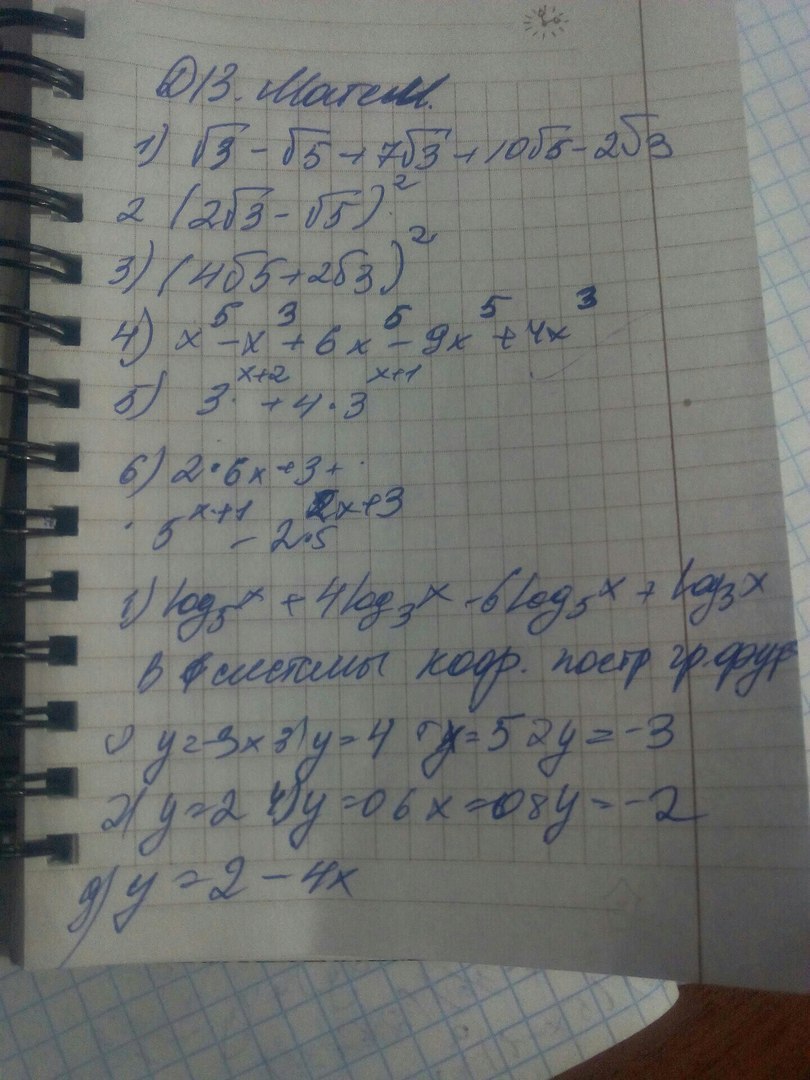 Д/З. Матем.
1) √3 - √5 + 7√3 + 10√5 - 2√3
2 (2√3 - √5)²
3) (4√5 + 2√3)²
4) x⁵ - x³ + 6x⁵ - 9x⁵ + 4x³
5) 3^(x+2) + 4·3^(x+1)
6) 2·6x + 3 +
5^(x+1) - 2·5^(2x+3)
log₅x + 4log₃x - 6log₅x + log₃x
В системы коор. постр гр.
y = -3x 3) y = 4 y = 5 y = -3
2) y = 2 4) y = 0 6 x = 0 8 y = -2
y = 2 - 4x